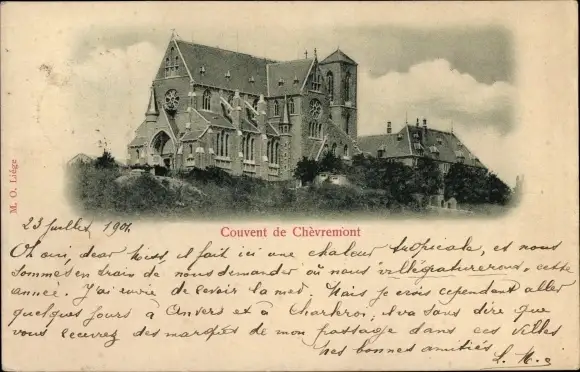 M. O. Liége
Couvent de Chèvremont
23 Juillet, 1901.
Oh oui, dear Miss, il fait ici une chaleur tropicale, et nous
sommes en train de nous demander où nous "villégiaturerons" cette
année. J'ai envie de revoir la mer. Mais je crois cependant aller
quelques jours à Anvers et à Charleroi; il va sans dire que
vous recevrez des marques de mon passage dans ces villes
Mes bonnes amitiés
L. M.